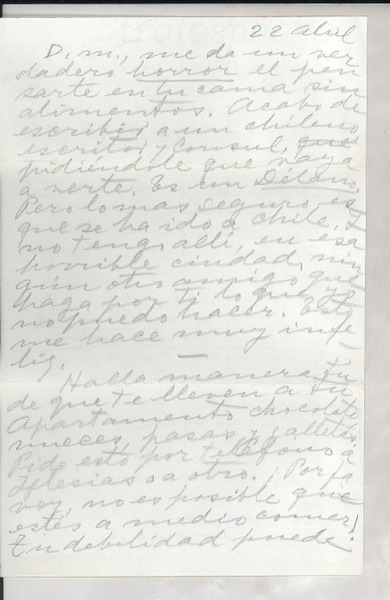 22 Abril
D. m., me da un ver
dadero horror el pen
sarte en tu cama sin
alimentos. Acabo de
escribir a un chileno
escritor y consul, que
pidiéndole que vaya
a verte. Es un Délano.
Pero lo mas seguro es
que se ha ido a Chile. Y
no tengo allí, en esa
horrible ciudad, nin
gún otro amigo que
haga por ti lo que yo
no puedo hacer. Esto
me hace muy infe
liz.
Halla manera tu
de que te lleven a tu
Apartamento chocolate
nueces, pasas y galletas.
Pide esto por teléfono a
Iglesias o a otro. ¡Por fa
vor, no es posible que
estés a medio comer!
Tu debilidad puede